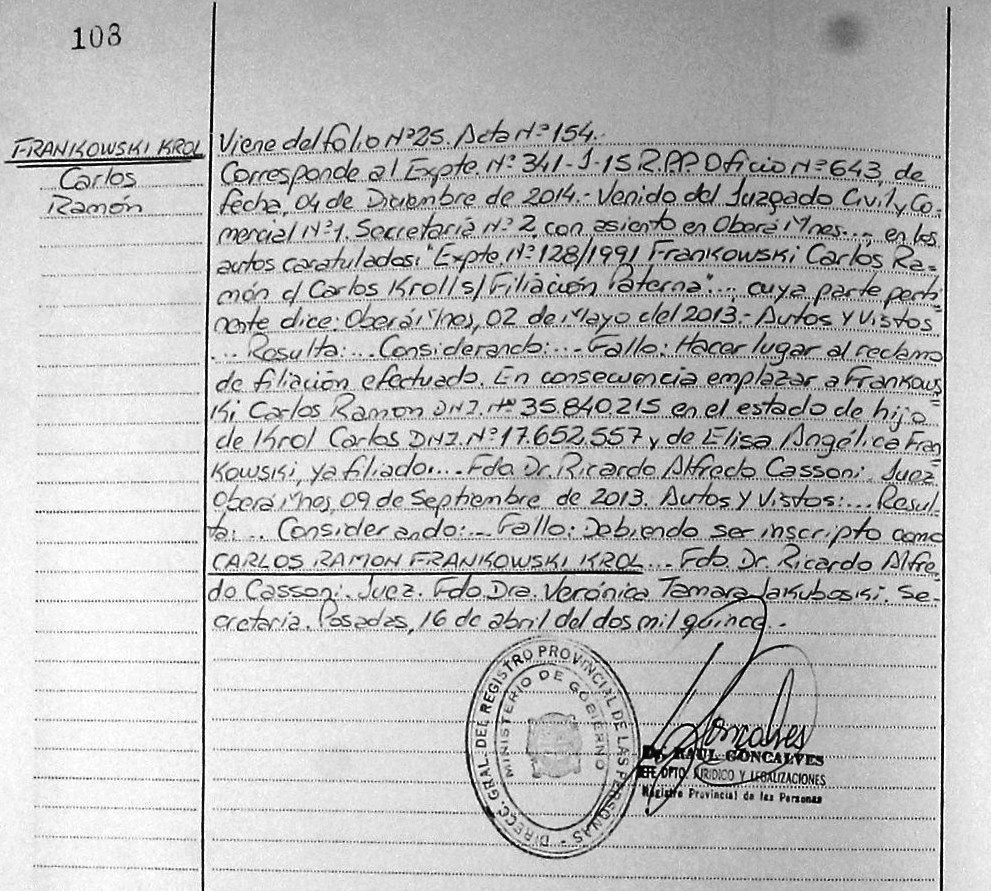 108
FRANKOWSKI KROL
Carlos
Ramón
Viene del folio Nº 25. Acta Nº 154.
Corresponde al Expte. Nº 341-J-15 R.P.P. Oficio Nº 643, de
fecha, 04 de Diciembre de 2014.- Venido del Juzgado Civil y Co-
mercial Nº 1. Secretaría Nº 2, con asiento en Oberá Mnes..., en los
autos caratulados: "Expte. Nº 128/1991 Frankowski Carlos Ra-
món c/ Carlos Krol s/ Filiación Paterna"..., cuya parte perti-
nente dice: Oberá Mnes, 02 de Mayo del 2013.- Autos y Vistos
... Resulta:... Considerando:... Fallo: Hacer lugar al reclamo
de filiación efectuado. En consecuencia emplazar a Frankows-
ki Carlos Ramon DNI. Nº 35.840215 en el estado de hijo
de Krol Carlos DNI. Nº 17.652.557 y de Elisa Angélica Fran-
kowski, ya filiado.... Fdo. Dr. Ricardo Alfredo Cassoni. Juez.
Oberá Mnes, 09 de Septiembre de 2013. Autos y Vistos:... Resul-
ta:... Considerando:... Fallo: Debiendo ser inscripto como
CARLOS RAMON FRANKOWSKI KROL... Fdo. Dr. Ricardo Alfre-
do Cassoni. Juez. Fdo. Dra. Verónica Tamara Jakuboski. Se-
cretaria. Posadas, 16 de abril del dos mil quince.-
DIRECC. GRAL. DEL REGISTRO PROVINCIAL DE LAS PERSONAS
MINISTERIO DE GOBIERNO
Goncalves
Dr. RAUL GONCALVES
JEFE DPTO. JURIDICO Y LEGALIZACIONES
Registro Provincial de las Personas